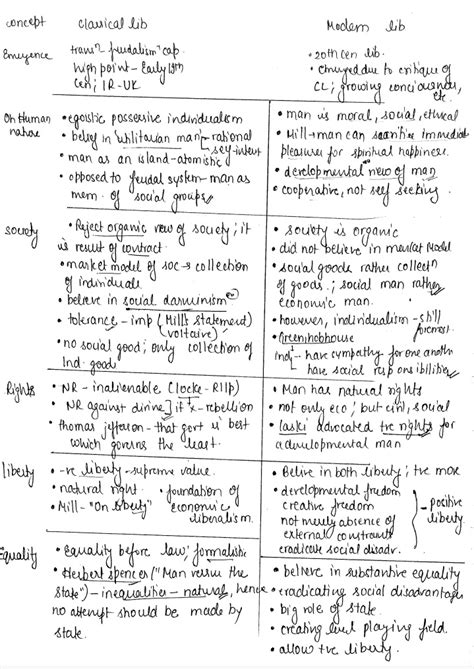 concept
classical lib
Modern lib
Emergence
transn feudalism cap.
high point - Early 19th
cen; IR-UK
• 20th cen lib.
• changed due to critique of
CL; growing conciousness,
etc.
On Human
nature
• egoistic possessive individualism
• belief in 'utilitarian man' - rational
self-interest
• man as an island-atomistic
• opposed to feudal system - man as
mem. of social groups
• man is moral, social, ethical
• Mill → man can sacrifice immediate
pleasures for spiritual happiness.
• developmental view of man
• cooperative, not self seeking.
society
• Reject organic view of society; it
is result of contract
• market model of soc → collection
of individuals
• believe in social darwinism
• tolerance - imp (Mill's statement)
voltaire
• no social good; only collection of
Ind. good
• society is organic
• did not believe in market Model
• social goods rather collectn
of goods; social man rather
economic man.
• however, individualism - still
foremost.
• Green, hobhouse
indi - have sympathy for one another
have social responsibilities
Rights
• NR - inalienable (locke - Rllp)
• NR against divine] if x - rebellion
• thomas jefferson - that govt is best
which governs the least.
• Man has natural rights
• not only eco, but civil, social
• laski advocated +ve rights for
a developmental man
liberty
• -ve liberty - supreme value.
• natural right.
• Mill - "On liberty"
foundation of
economic
liberalism.
• Belive in both liberty; +ve more
• developmental freedom
creative freedom
not merely absence of
external constraints
eradicate social disadv.
positive
liberty
Equality
• Equality before law, formalistic
• Herbert spencer ("Man versus the
state") - inequalities - natural, hence
no attempt should be made by
state.
• believe in substantive equality
• eradicating social disadvantages
• big role of state.
• creating level playing field.
• allow +ve liberty.